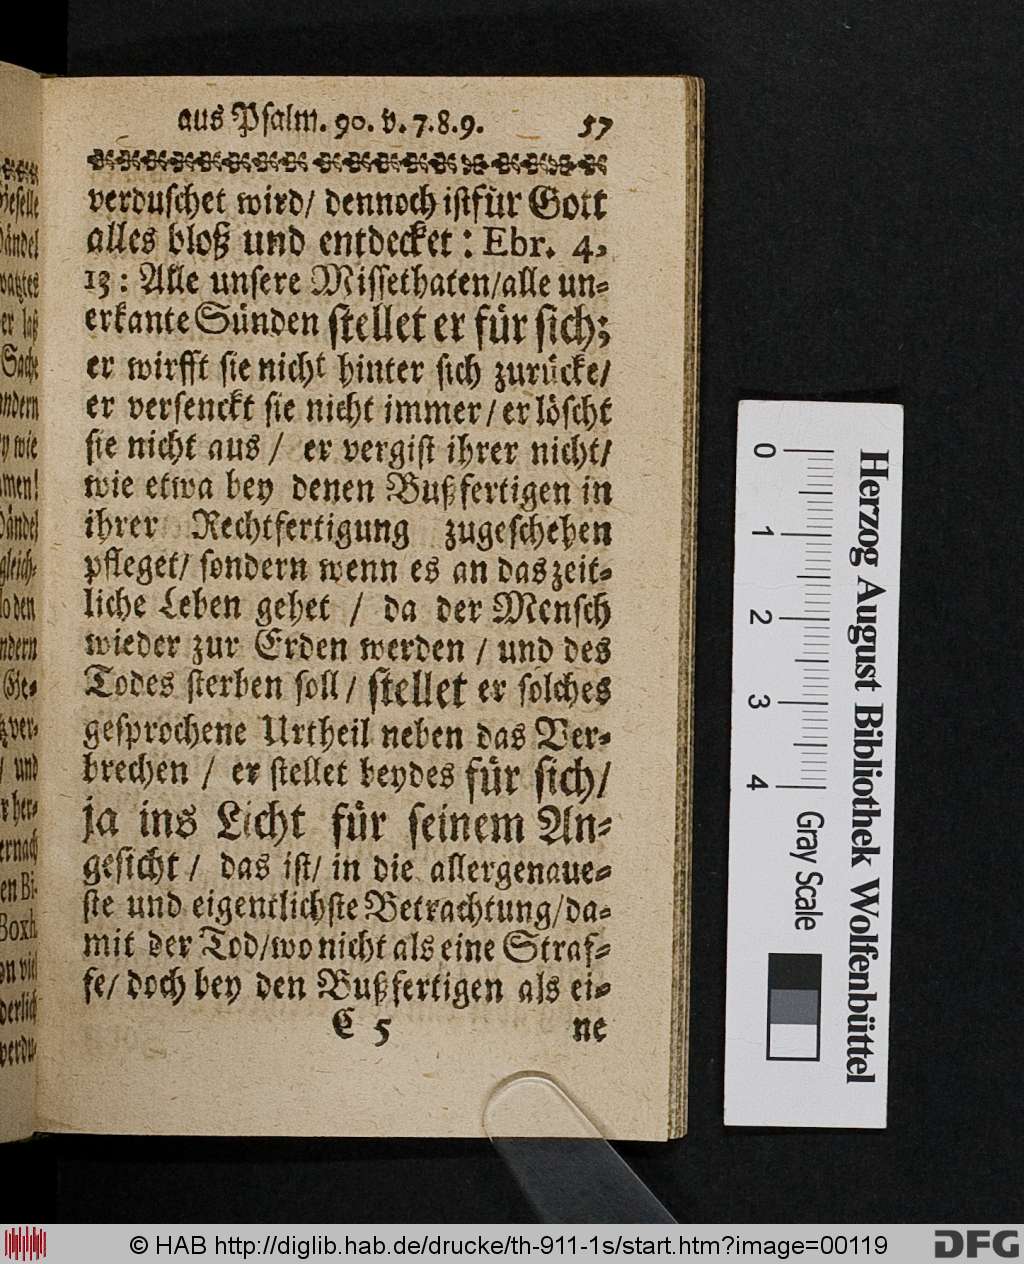 aus Psalm. 90. v. 7. 8. 9. 57
verduschet wird/ dennoch ist für Gott
alles bloß und entdecket: Ebr. 4,
13: Alle unsere Missethaten/alle un-
erkante Sünden stellet er für sich;
er wirfft sie nicht hinter sich zurücke/
er versenckt sie nicht immer/ er löscht
sie nicht aus / er vergist ihrer nicht/
wie etwa bey denen Bußfertigen in
ihrer Rechtfertigung zugeschehen
pfleget/ sondern wenn es an das zeit-
liche Leben gehet / da der Mensch
wieder zur Erden werden / und des
Todes sterben soll / stellet er solches
gesprochene Urtheil neben das Ver-
brechen / er stellet beydes für sich/
ja ins Licht für seinem An-
gesicht / das ist/ in die allergenaue-
ste und eigentlichste Betrachtung/da-
mit der Tod/wo nicht als eine Straf-
fe/ doch bey den Bußfertigen als ei-
C 5 ne
Geselle
Händel
er laß
Sache
andern
wie
men!
Händel
gleich-
den
ndern
Ge-
ver-
/ und
her-
ernach
en Bi-
Boxh
on viel
derlich
verdu-
0 1 2 3 4
Gray Scale
Herzog August Bibliothek Wolfenbüttel
© HAB http://diglib.hab.de/drucke/th-911-1s/start.htm?image=00119
DFG